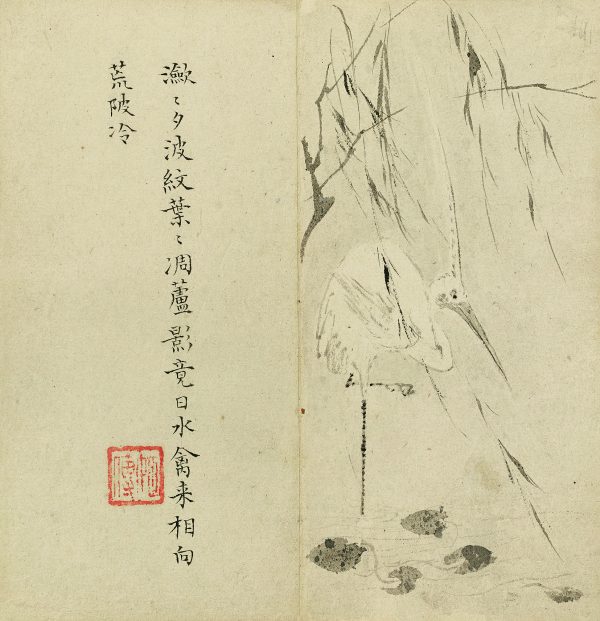 瀲〻夕波紋葉〻凋蘆影竟日水禽来相向
荒陂冷